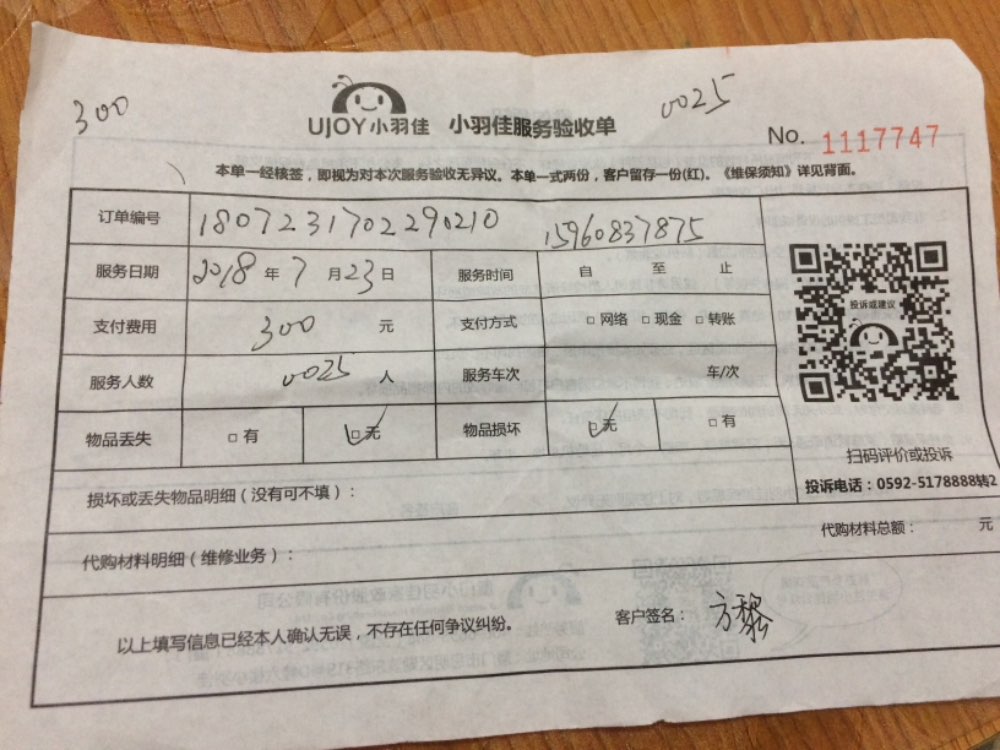 300
0025
UJOY小羽佳 小羽佳服务验收单
No. 1117747
本单一经核签，即视为对本次服务验收无异议。本单一式两份，客户留存一份(红)。《维保须知》详见背面。
订单编号 1807231702290210 15960837875
服务日期 2018 年 7 月 23 日 服务时间 自 至 止
支付费用 300 元 支付方式 □ 网络 □ 现金 □ 转账
服务人数 0025 人 服务车次 车/次
物品丢失 □ 有 □ 无 物品损坏 □ 无 □ 有
投诉或建议
扫码评价或投诉
投诉电话：0592-5178888转2
损坏或丢失物品明细（没有可不填）：
代购材料明细（维修业务）：
代购材料总额： 元
以上填写信息已经本人确认无误，不存在任何争议纠纷。
客户签名：方黎